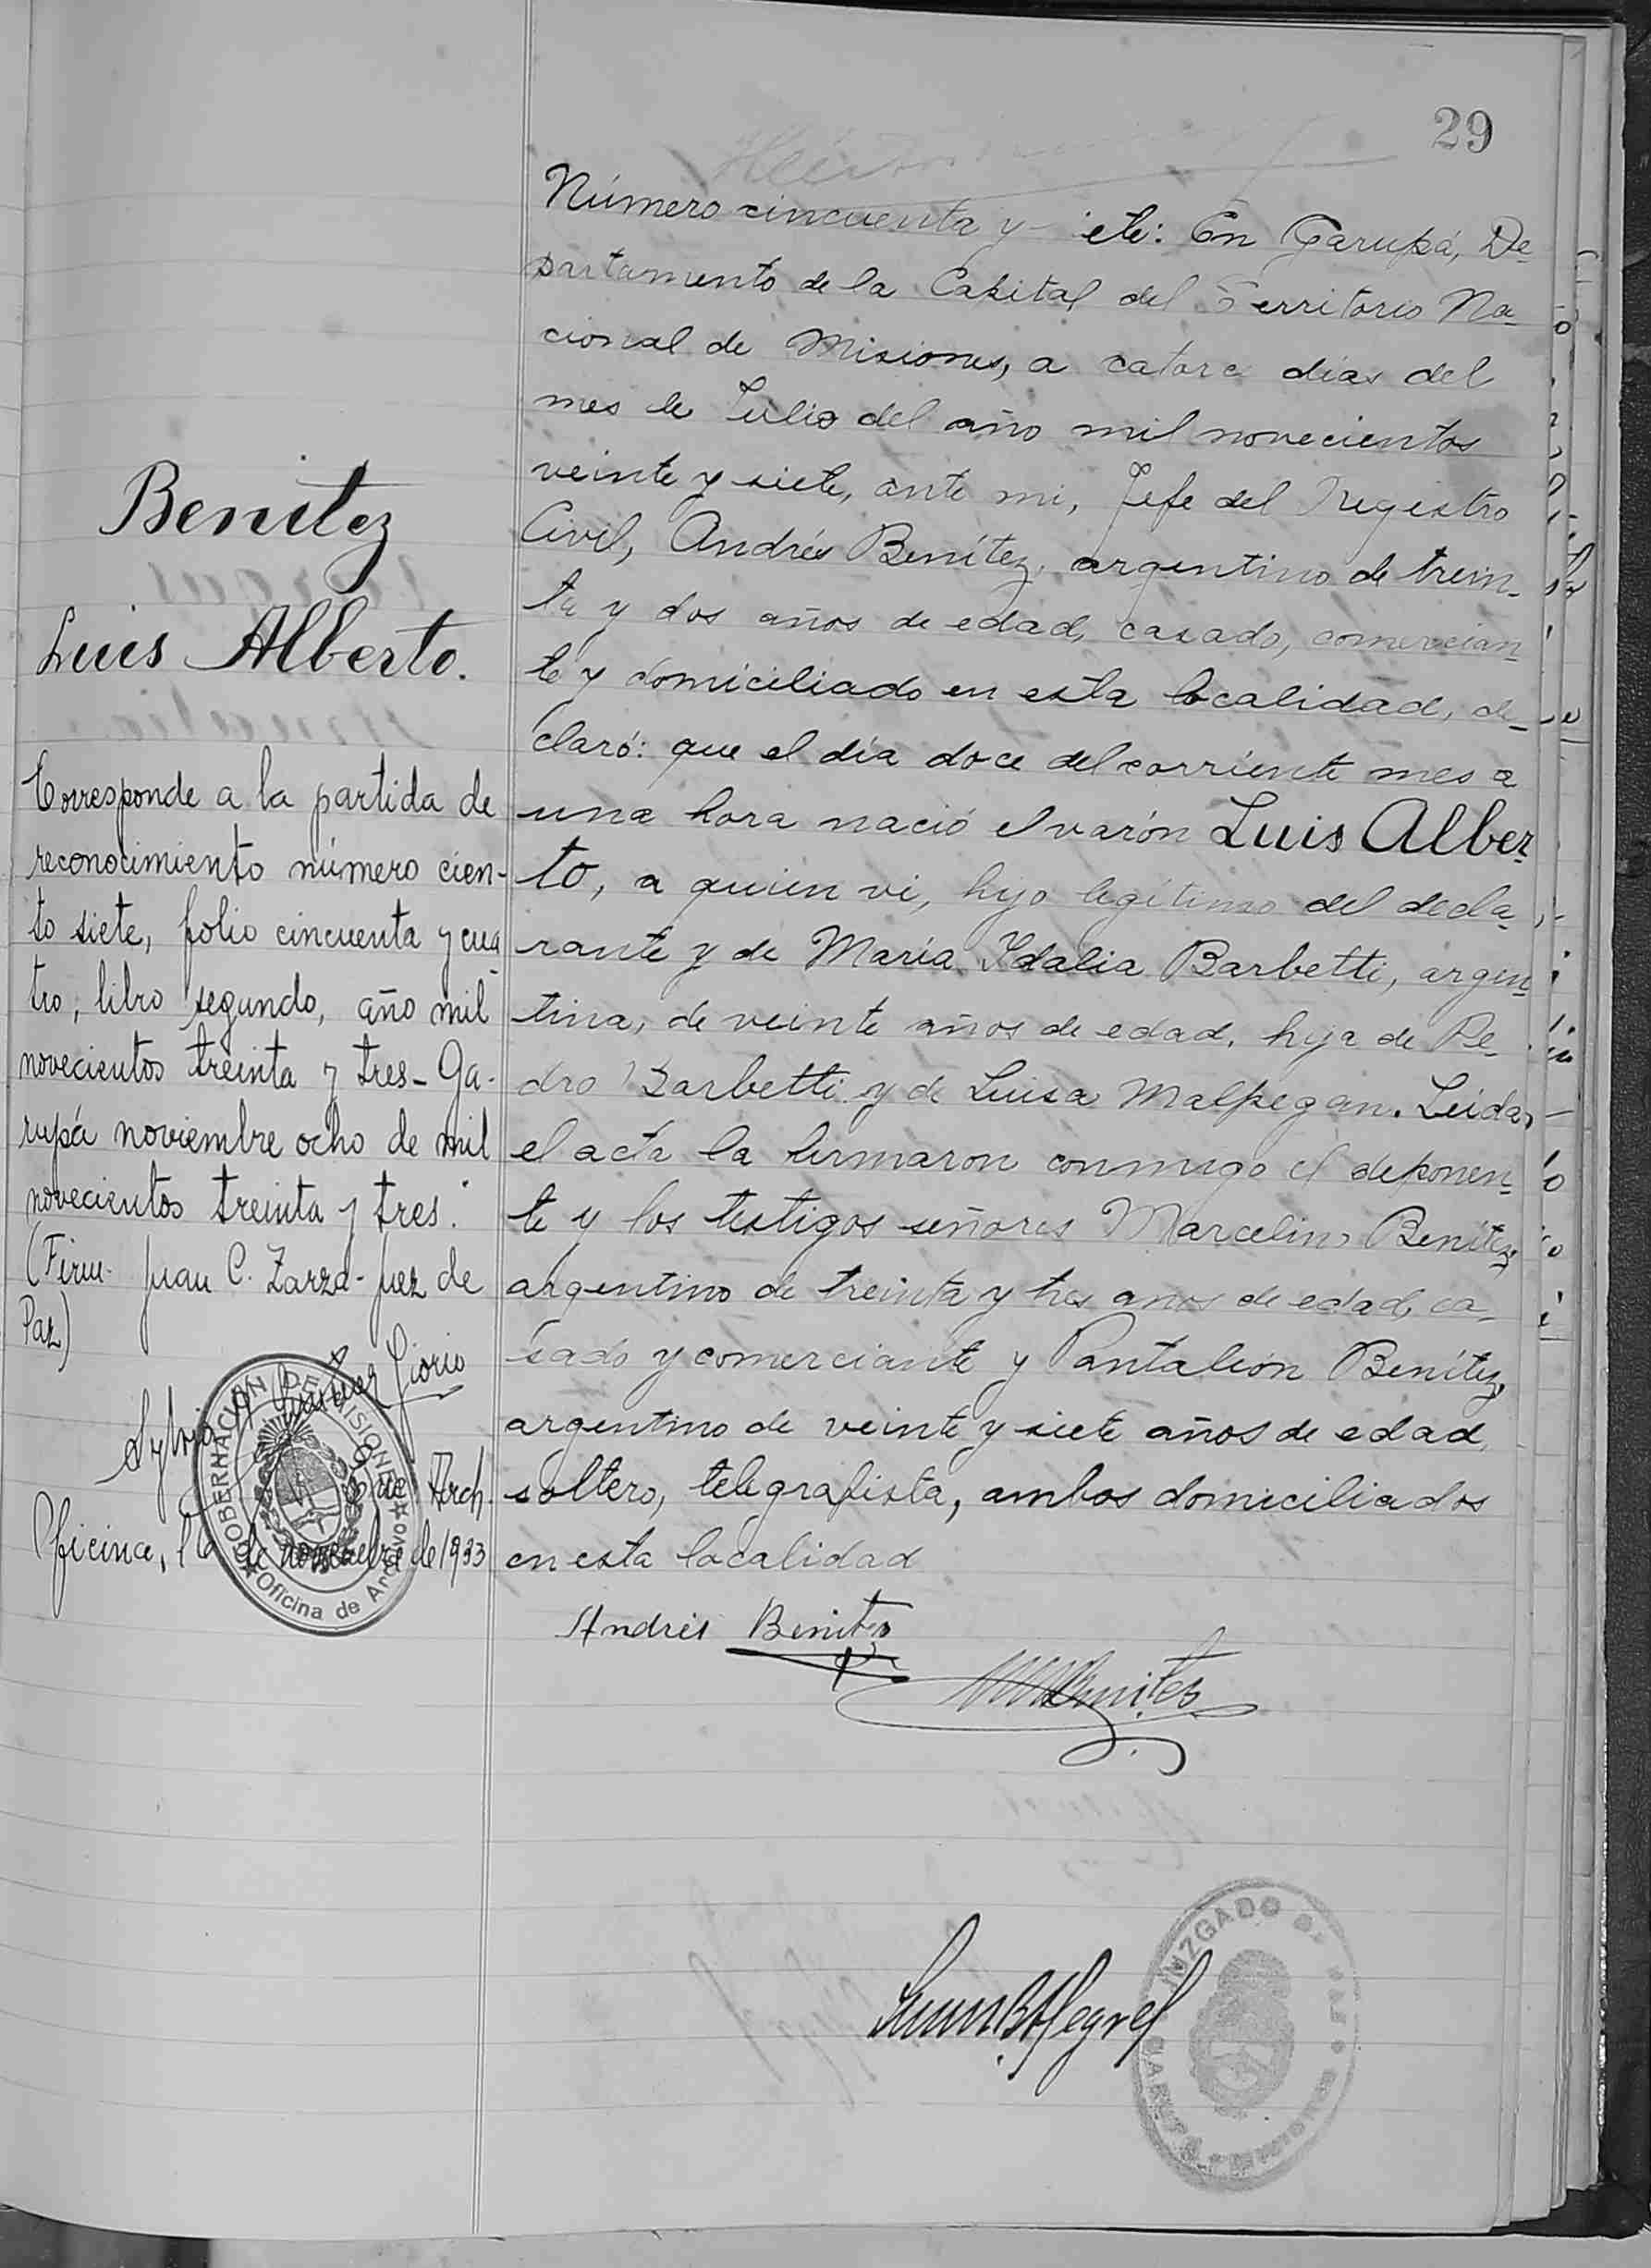 29
Número cincuenta y iete: En Garupá, De
partamento de la Capital del Territorio Na
cional de Misiones, a catorce días del
mes de Julio del año mil novecientos
veinte y siete, ante mi, Jefe del Registro
Civil, Andrés Benítez, argentino de trein
ta y dos años de edad, casado, comercian
te y domiciliado en esta localidad, de
claró: que el día doce del corriente mes a
una hora nació el varón Luis Alber
to, a quien vi, hijo legítimo del decla
rante y de María Idalia Barbetti, argen
tina, de veinte años de edad, hija de Pe
dro Barbetti y de Luisa Malpegan. Leída
el acta la firmaron conmigo el deponen
te y los testigos señores Marcelino Benítez
argentino de treinta y tres anos de edad, ca
sado y comerciante y Pantaleón Benítez,
argentino de veinte y siete años de edad,
soltero, telegrafista, ambos domiciliados
en esta localidad
Andrés Benitez
Benitez
Benitez
Luis Alberto.
Corresponde a la partida de
reconocimiento número cien-
to siete, folio cincuenta y cua
tro, libro segundo, año mil
novecientos treinta y tres - Ga-
rupá noviembre ocho de mil
novecientos treinta y tres.
(Firm. Juan C. Zarza - Juez de
Paz)
Giorio
Arch.
Oficina, 16 de noviembre de 1933
GOBERNACION DE MISIONES
Oficina de Archivo
JUZGADO DE PAZ